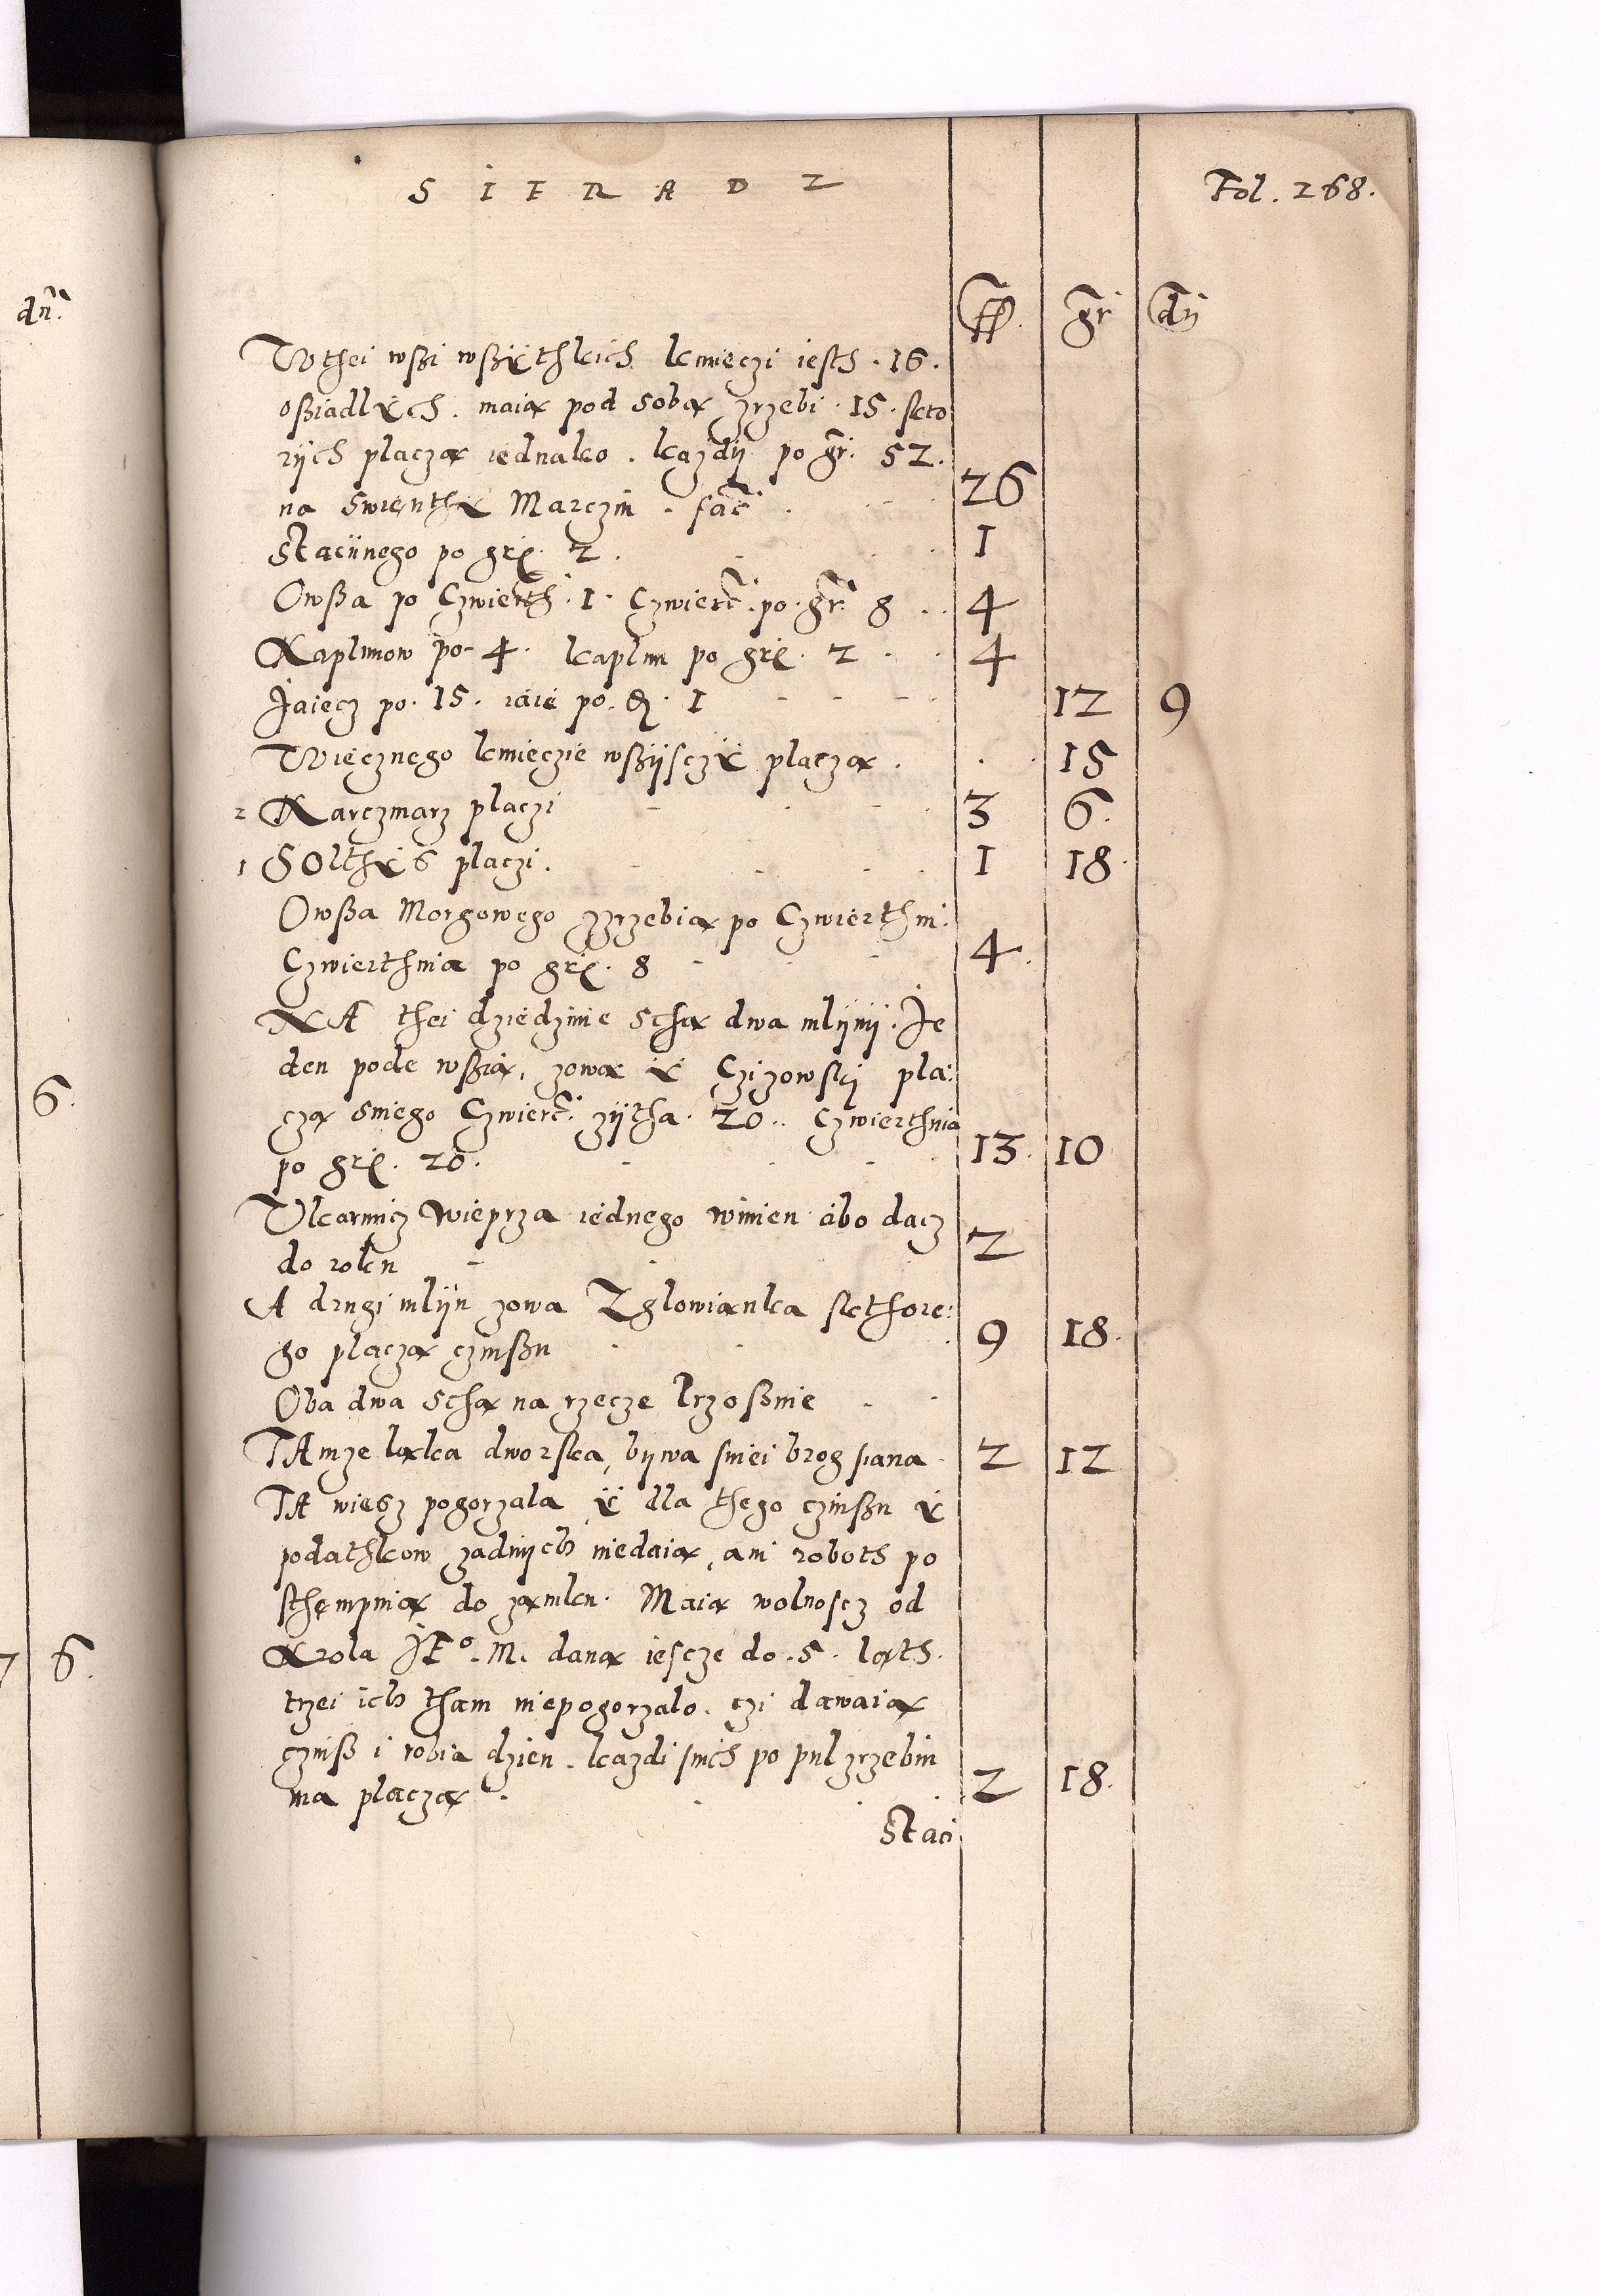 SIERADZ
Fol. 268.
dn̄.
ff. gr dn
W thei wßi wßÿthkich kmieczi iesth . 16 .
oßiadlÿch . maią pod sobą zrzebi . 15 . skto
rÿch placzą iednako . kazdÿ po gr. 52.
na swienthÿ Marczin . fac̃ . 26
Staciinego po grę. 2 . 1
Owßa po Czwierth . 1 . Czwierc̃ . po . gr. 8 . . 4
Kaplunow po 4 . kaplun po grę. 2 . . 4
Jaiecz po . 15 . iaie po . ꝗ . 1 12 9
Wiecznego kmieczie wßÿsczÿ placzą . 15
2 Karczmarz placzi 3 6.
1 Solthÿs placzi . 1 18.
Owßa Morgowego zzrzebią po Czwierthni:
Czwierthnia po grę. 8 4.
NA thei dziedzinie schą dwa mlÿnÿ . Je
den pode wßią, zową ÿ Czizowski pla:
czą sniego Czwierc̃ zÿtha . 20 . . Czwierthnia
po grę. 20 . 13. 10
Vkarmicz wieprza iednego winien abo dacz
do roku 2
A drugi mlÿn zowa Zglowiąnka skthore:
go placzą czinßu 9 18.
Oba dwa schą na rzecze Krzoßnie
TAmze ląka dworska, bÿwa sniei brog siana 2 12
TA wiesz pogorzala ÿ dla thego czinßu ÿ
podathkow zadnÿch niedaią, ani roboth po
sthempnią do zamku. Maią wolnoscz od
Krola JE⁰. M. daną iescze do . 5 . lath.
trzei ich tham niepogorzalo, czi dawaią
czinß i robia dzien . kazdi snich po pul zrzebiu
ma placzą . 2 18.
Staci
6.
7 6.